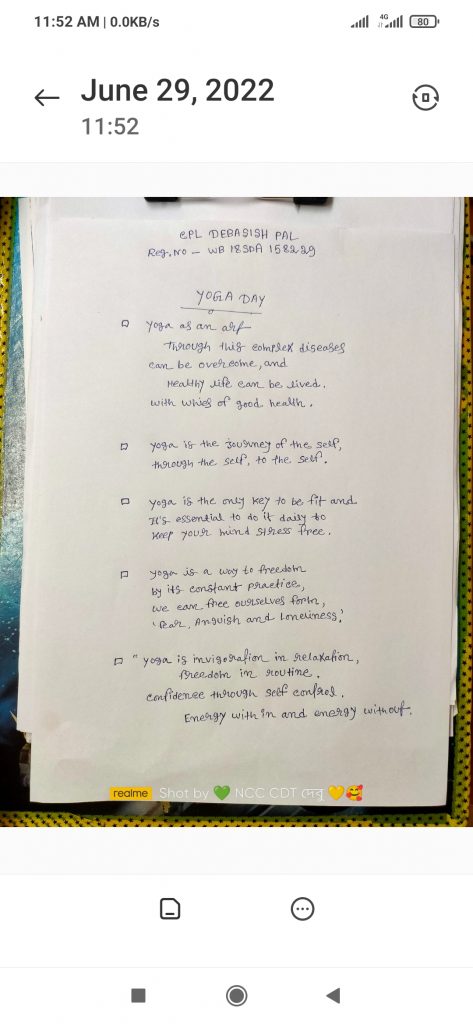 11:52 AM | 0.0KB/s
4G
80
June 29, 2022
11:52
CPL DEBASISH PAL
Reg. No – WB 18 SDA 158229
YOGA DAY
Yoga as an art
Through this complex diseases
can be overcome, and
Healthy life can be lived.
with of good health.
Yoga is the Journey of the self,
through the self, to the self.
Yoga is the only key to be fit and
It's essential to do it daily to
keep your mind stress free.
Yoga is a way to freedom
by its constant practice,
we can free ourselves form,
'fear, Anguish and Loneliness.'
" Yoga is invigoration in relaxation,
freedom in routine.
confidence through self control.
Energy with in and energy without.
realme Shot by 💚 NCC CDT দেবু 💛🥰